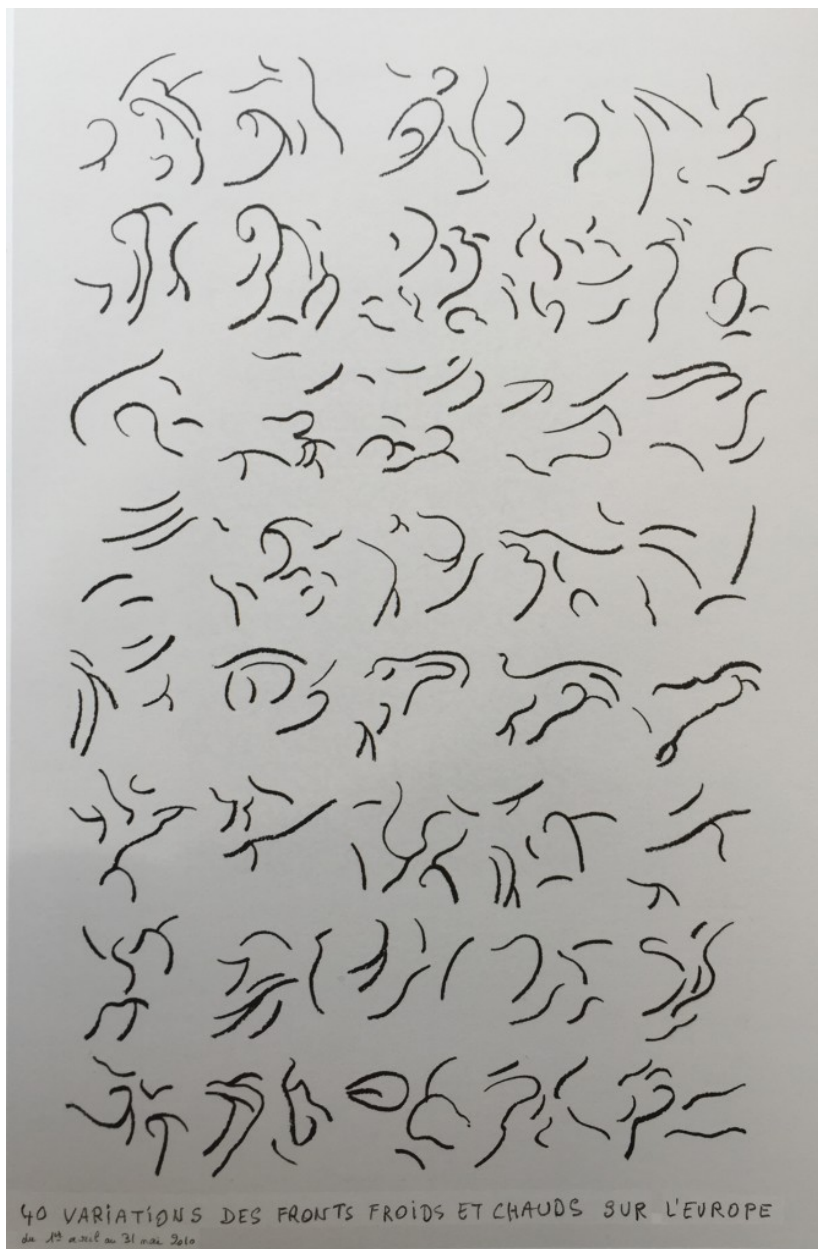 40 VARIATIONS DES FRONTS FROIDS ET CHAUDS SUR L'EUROPE
du 1er avril au 31 mai 2010